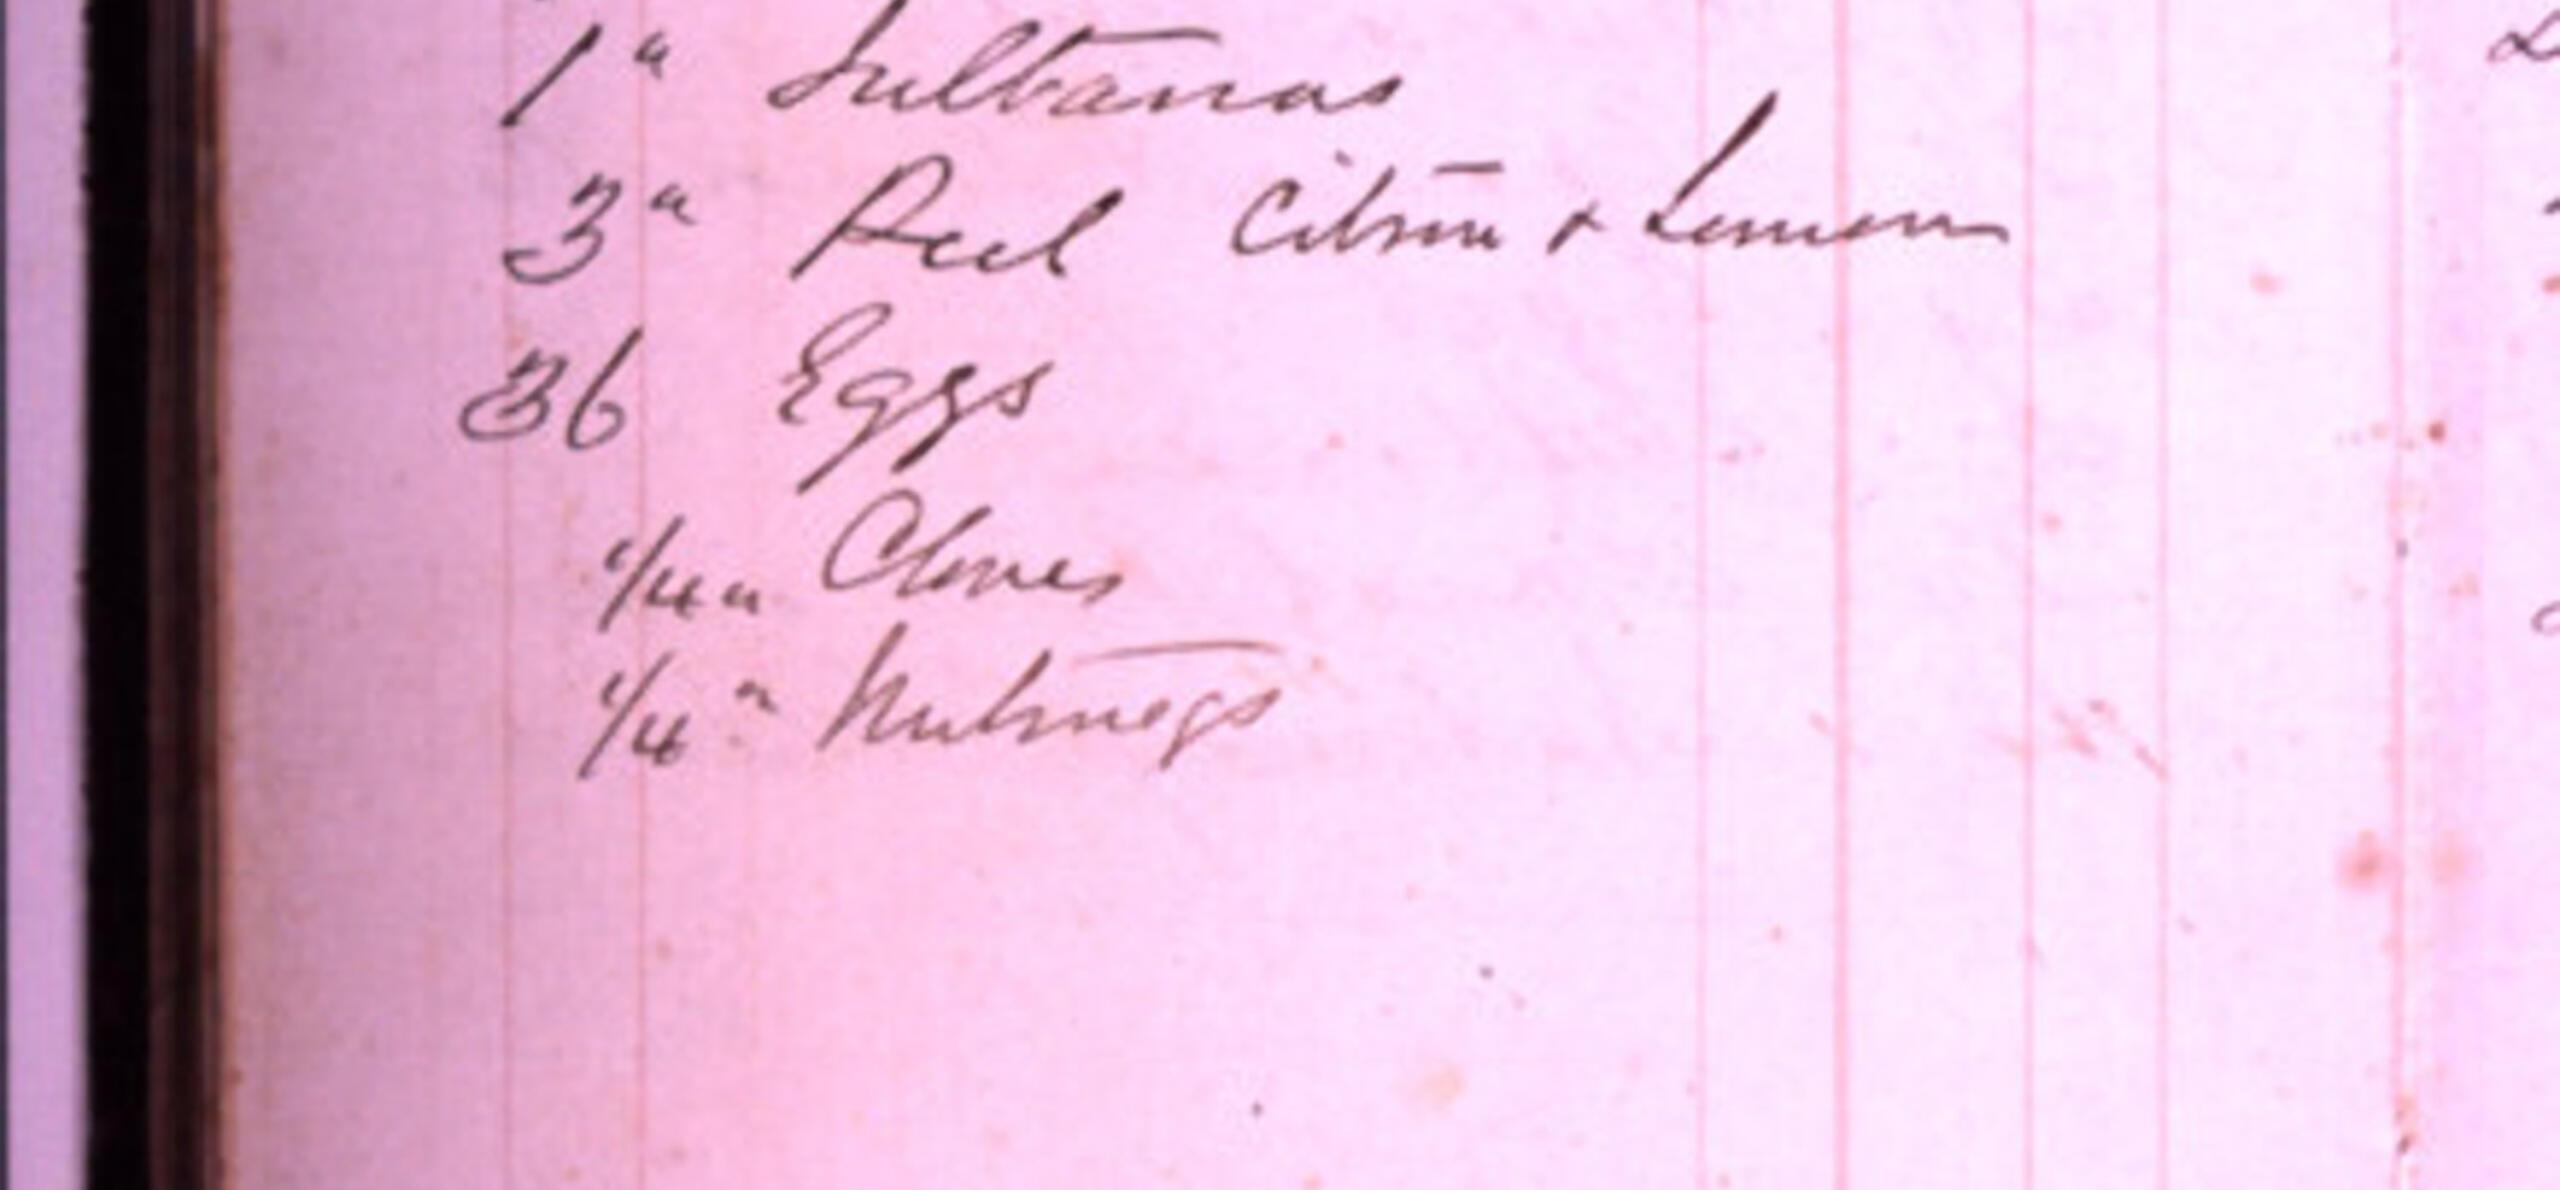 1 " Sultanas
3 " Peel Citron & Lemon
36 Eggs
1/4 " Cloves
1/4 " Nutmegs